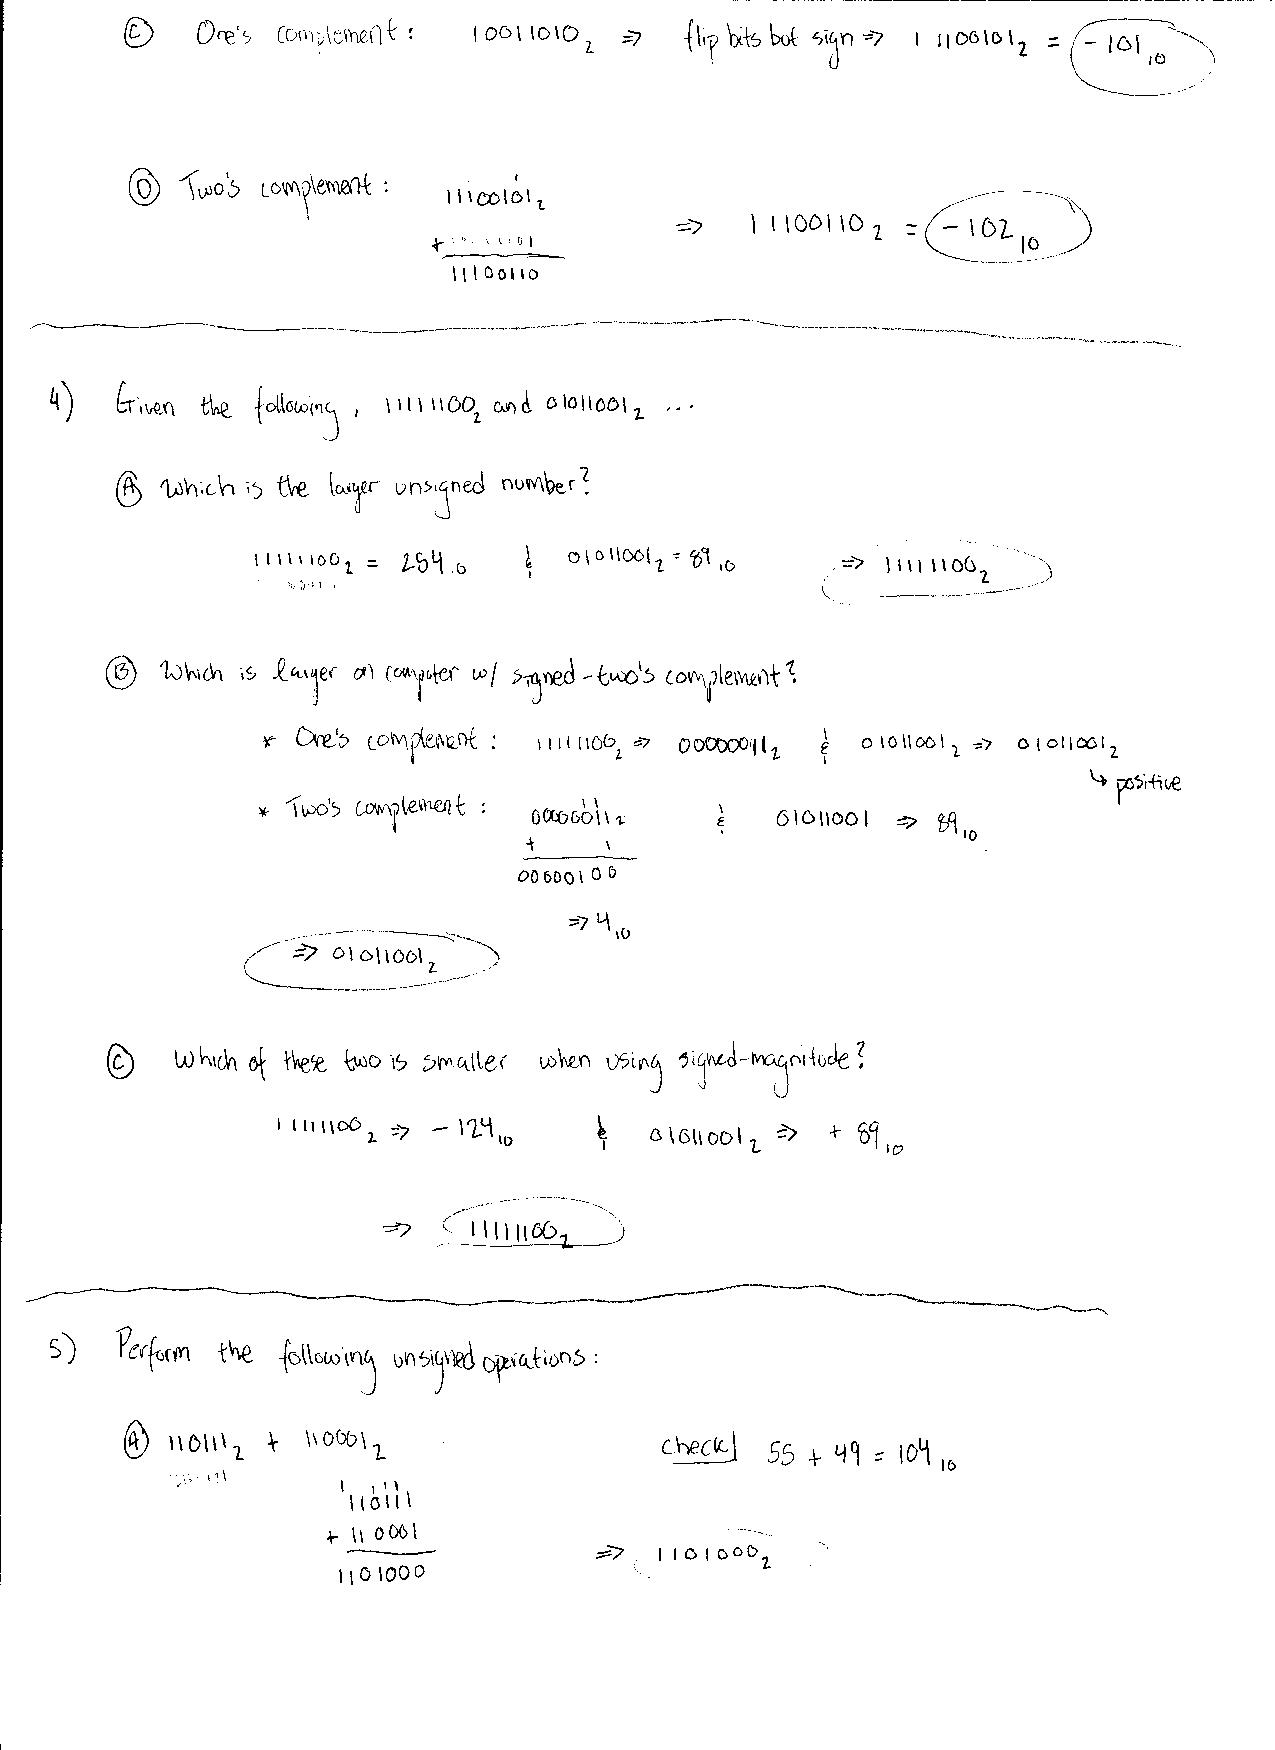 Ⓒ One's complement : 10011010₂ ⇒ flip bits but sign ⇒ 11100101₂ = -101₁₀
Ⓓ Two's complement : 11100101₂ ⇒ 11100110₂ = -102₁₀
+ 00000001
11100110
4) Given the following, 11111100₂ and 01011001₂ ...
Ⓐ Which is the larger unsigned number?
11111100₂ = 254₁₀ & 01011001₂ = 89₁₀ ⇒ 11111100₂
Ⓑ Which is larger on computer w/ signed-two's complement?
* One's complement : 11111100₂ ⇒ 00000011₂ & 01011001₂ ⇒ 01011001₂
↳ positive
* Two's complement : 00000011₂ & 01011001 ⇒ 89₁₀
+ 1
00000100
⇒ 4₁₀
⇒ 01011001₂
Ⓒ Which of these two is smaller when using signed-magnitude?
11111100₂ ⇒ -124₁₀ & 01011001₂ ⇒ + 89₁₀
⇒ 11111100₂
5) Perform the following unsigned operations :
Ⓐ 110111₂ + 110001₂ check| 55 + 49 = 104₁₀
1 111
110111
+ 110001 ⇒ 1101000₂
1101000